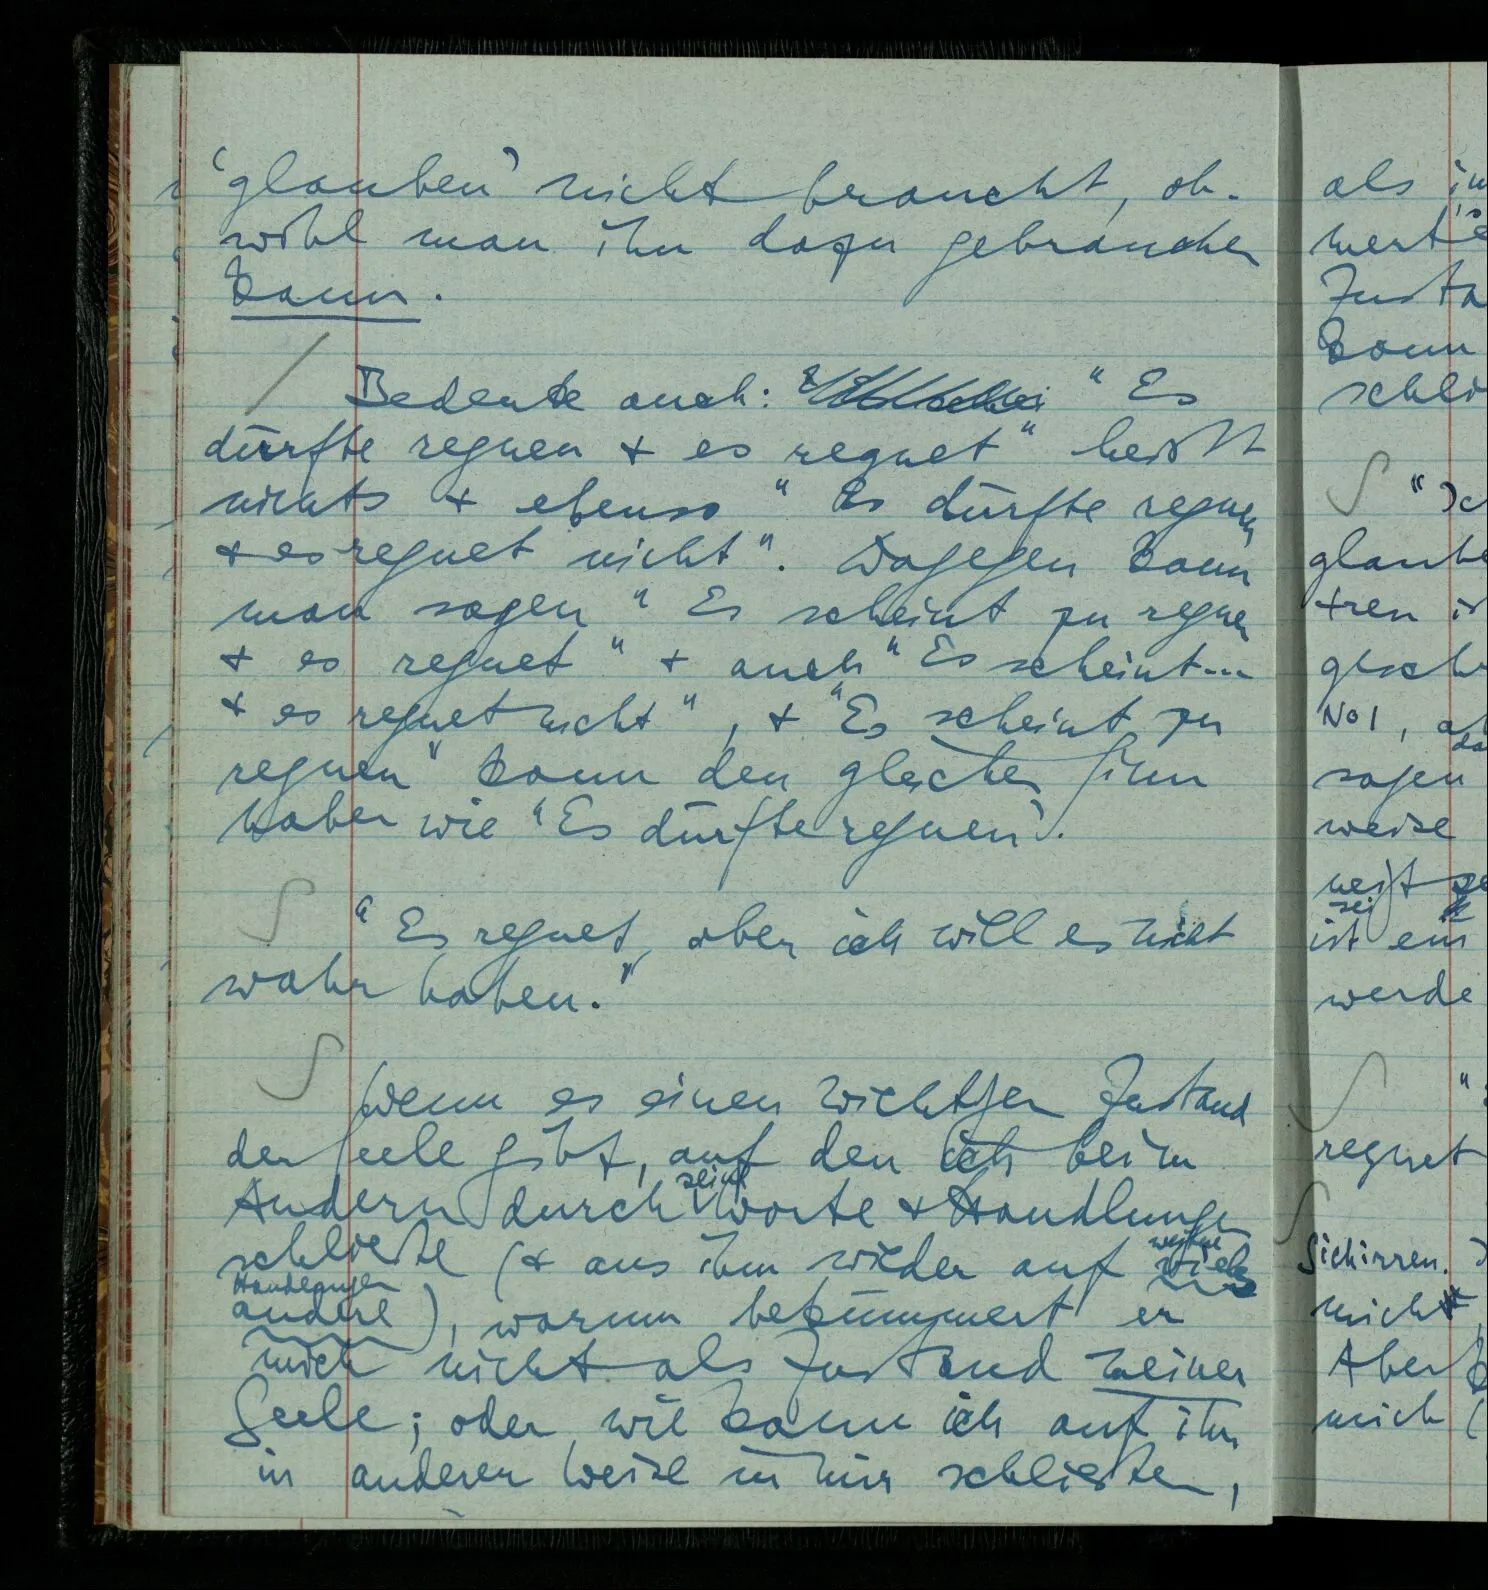 'glauben' nicht braucht, ob-
wohl man ihn dazu gebrauchen
kann.
/ Bedenke auch: "Es
dürfte regnen & es regnet" heißt
nichts & ebenso "Es dürfte regnen
& es regnet nicht". Dagegen kann
man sagen "Es scheint zu regnen
& es regnet" & auch "Es scheint...
& es regnet nicht", & "Es scheint zu
regnen" kann den gleichen Sinn
haben wie "Es dürfte regnen".
∫ "Es regnet, aber ich will es nicht
wahr haben."
∫ Wenn es einen wichtigen Zustand
der Seele gibt, auf den ich beim
seine
Andern durch Worte & Handlungen
weitere
schließe (& aus ihm wieder auf
Handlungen
andere), warum bekümmert er
mich nicht als Zustand meiner
Seele; oder wie kann ich auf ihn
in anderer Weise in mir schließen,
als
werte
Zusta
kann
schli
∫ "Ich
glaube
tren
gesch
No 1,
sagen
weise
sei
ist ein
werde
∫ "
regnet
∫
Sichirren.
nicht,
Aber
mich (